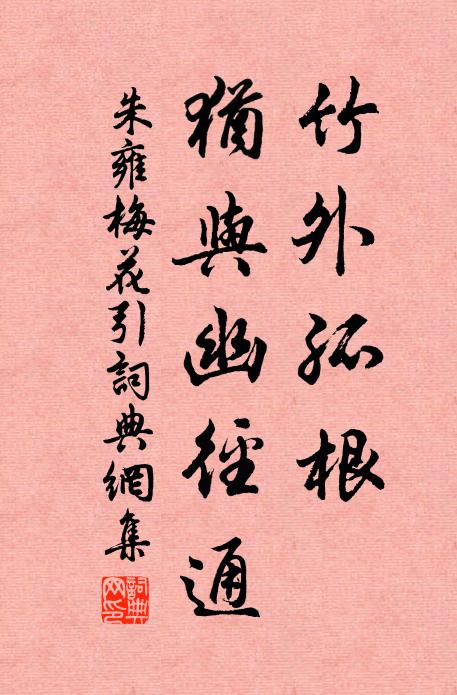 竹外孤根
猶與幽徑通
朱雍梅花引詞典網集
詞典網印